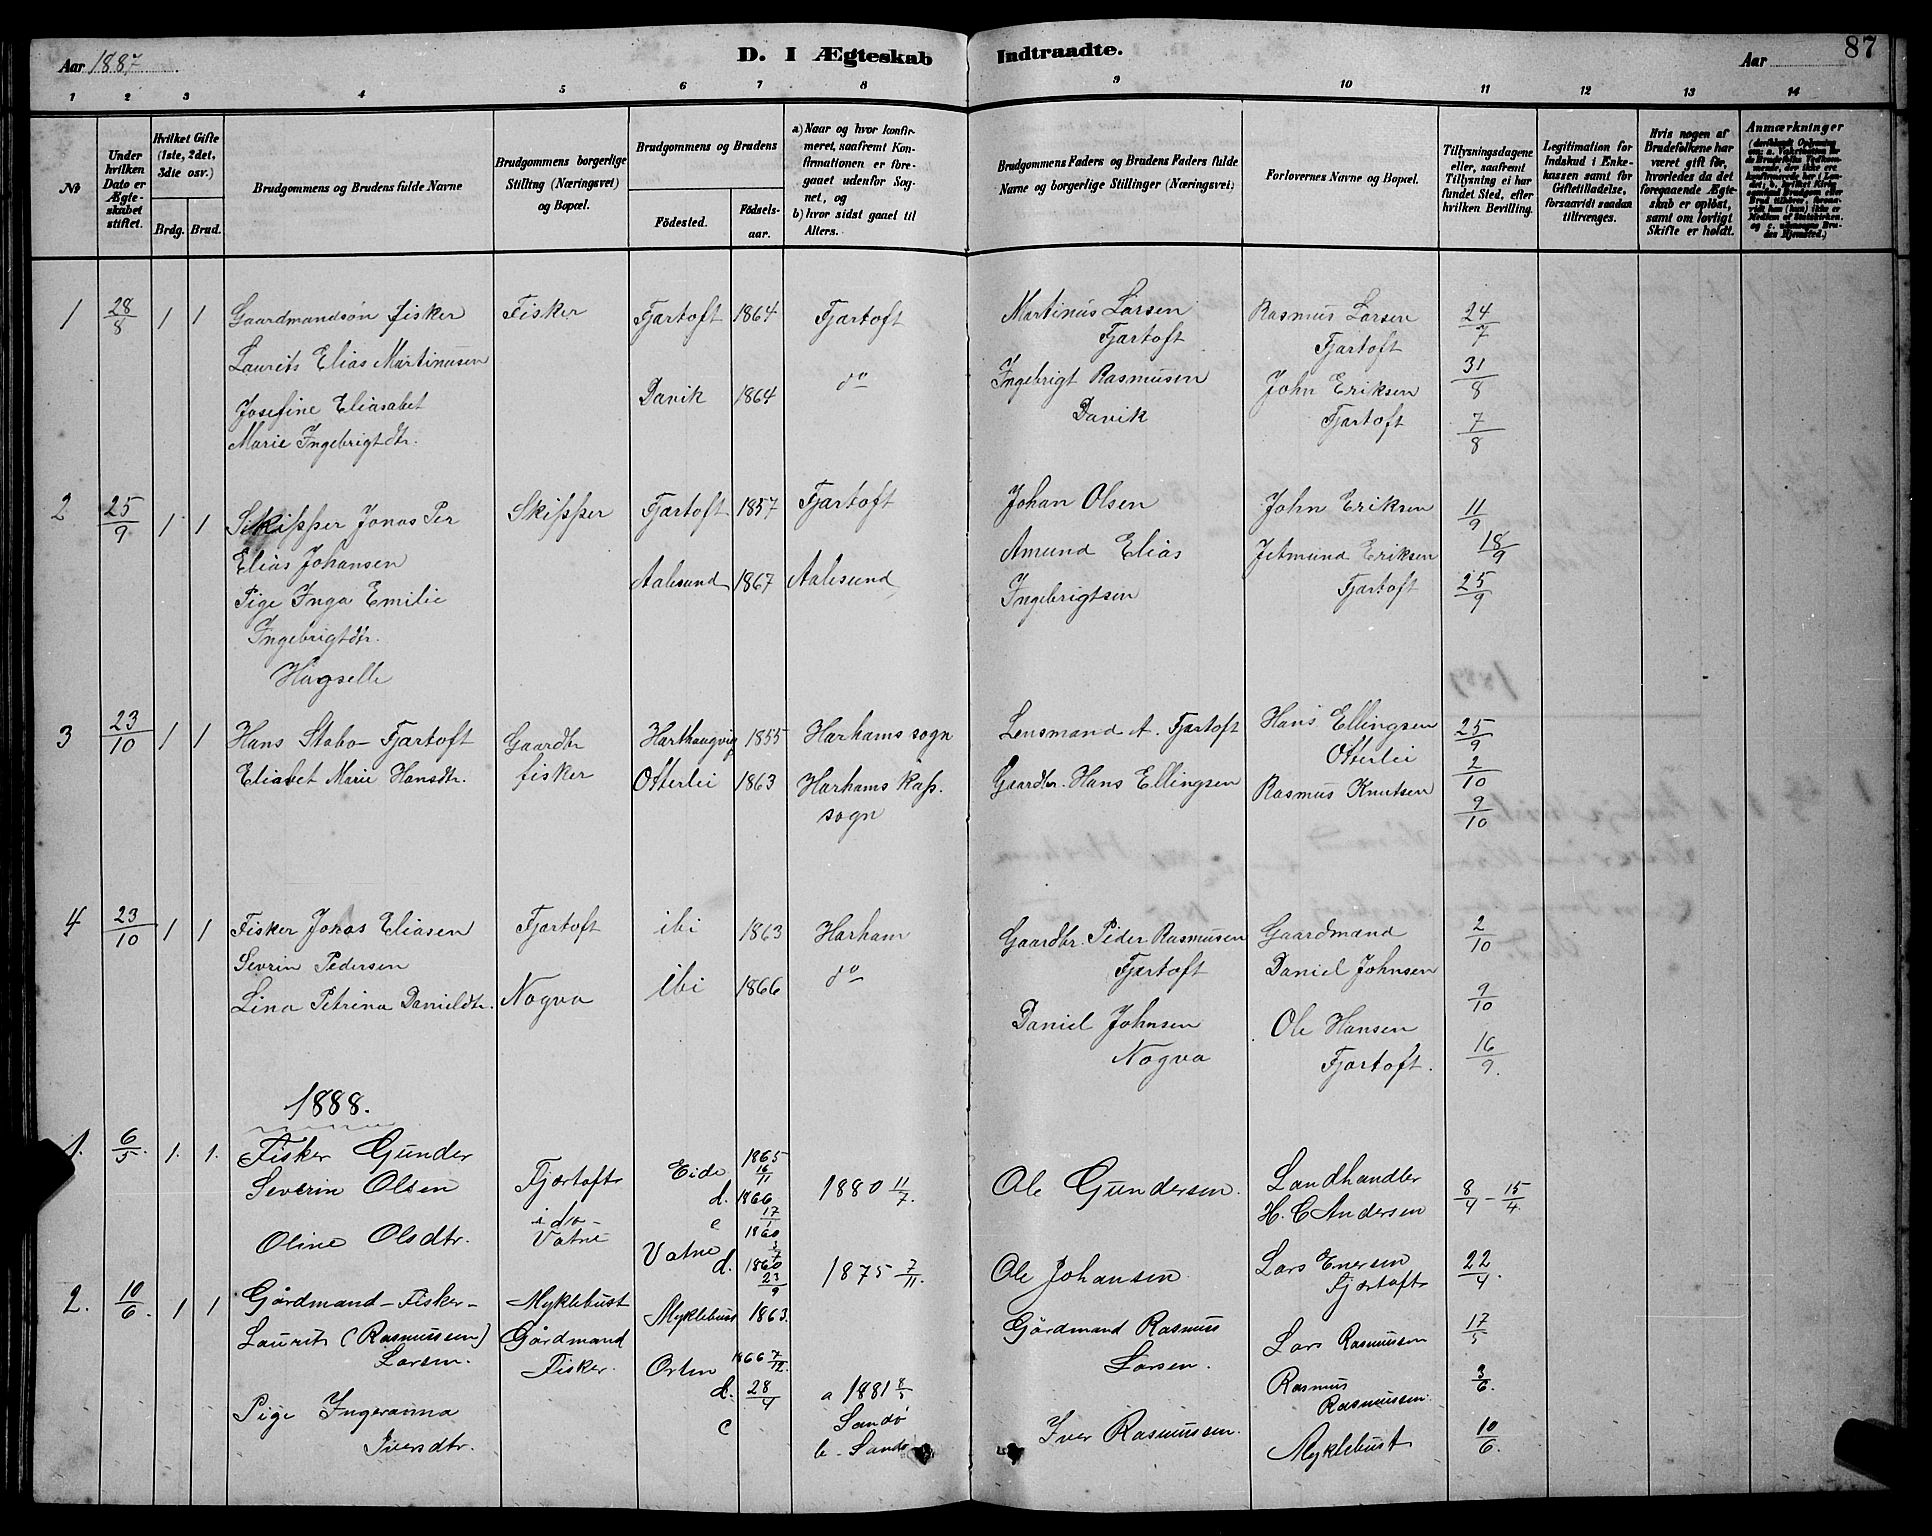 Aar 1887
D. I Ægteskab Indtraadte.
Aar
87
1 2 3 4 5 6 7 8 9 10 11 12 13 14
No
Under hvilken Dato er Ægteskabet stiftet.
Hvilket Gifte (1ste, 2det, 3die osv.)
Brdg. Brud.
Brudgommens og Brudens fulde Navne
Brudgommens borgerlige Stilling (Næringsvei) og Bopæl.
Brudgommens og Brudens
Födested.
Födselsaar.
a) Naar og hvor konfirmeret, saafremt Konfirmationen er foregaaet udenfor Sognet, og
b) hvor sidst gaaet til Alters.
Brudgommens Faders og Brudens Faders fulde Navne og borgerlige Stillinger (Næringsvei)
Forlovernes Navne og Bopæl.
Tillysningsdagene eller, saafremt Tillysning ei har fundet Sted, efter hvilken Bevilling.
Legitimation for Indskud i Enkekassen samt for Giftetilladelse, forsaavidt saadan tiltrænges.
Hvis nogen af Brudefolkene har været gift før, hvorledes da det foregaaende Ægteskab er oplöst, samt om lovligt Skifte er holdt.
Anmærkninger
1 28/8 1 1 Gaardmandsön fisker Fisker Fjærtoft 1864 Fjærtoft Martinus Larsen Rasmus Larsen 24/7
Laurits Elias Martinusen Fjærtoft Fjærtoft
Josefine Eliasabet Davik 1864 do Ingebrigt Rasmusen John Eriksen 31/8
Marie Ingebrigtdtr. Davik Fjærtoft 7/8
2 25/9 1 1 Skipper Jonas Per Skipper Fjærtoft 1857 Fjærtoft Johan Olsen John Eriksen 11/9
Elias Johansen Amund Elias Jetmund Eriksen 18/9
Pige Inga Emilie Aalesund 1867 Aalesund Ingebrigtsen Fjærtoft 25/9
Ingebrigtdtr.
Hagselle
3 23/10 1 1 Hans Stabo Fjærtoft Gaardbr Harthaugvig 1855 Harhams sogn Lensmand A. Fjærtoft Hans Ellingsen 25/9
Otterlei 2/10
Eliabet Marie Hansdtr. fisker Otterlei 1863 Harhams kap. Gaardbr. Hans Ellingsen Rasmus Knutsen 9/10
sogn
4 23/10 1 1 Fisker Jonas Eliasen Fjærtoft ibi 1863 Harham Gaardbr. Peder Rasmusen Gaardmand 2/10
Sevrin Pedersen Fjærtoft Daniel Johnsen
Lina Petrina Danieldtr. Nogva ibi 1866 do Daniel Johnsen Ole Hansen 9/10
Nogva Fjærtoft. 16/9.
1888.
1. 6/5. 1. 1. Fisker Gunder Fjærtoft Eide 1865 16/11 1880 11/7. Ole Gundersen. Landhandler 8/4 - 15/4.
Severin Olsen d. 1866 17/1 H. C Andersen
Oline Olsdtr. ido- Vatne c Vatne 1860 3/7 d. 1860 23/9 1875 7/11. Ole Johansen Lars Enersen 22/4.
Fjærtoft
2. 10/6. 1 1 Gårdmand-Fisker- Myklebust Myklebust 1863. Gårdmand Rasmus Lars Rasmusen 17/5
Laurits (Rasmussen) Gårdmand Larsen.
Larsen. Fisker. Orten 1866 7/12 Rasmus 3/6.
d. 28/4 a 1881 8/5 Rasmussen.
Pige Ingeranna c Sandö Iver Rasmussen. Myklebust 10/6.
Iversdtr. b- Sandö